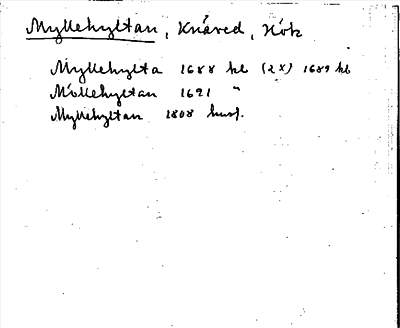 Myllehyltan, Knäred, Hök
Myllehylta 1688 kl (2x) 1689 kl
Möllehyltan 1691 "
Myllehyltan 1808 husf.